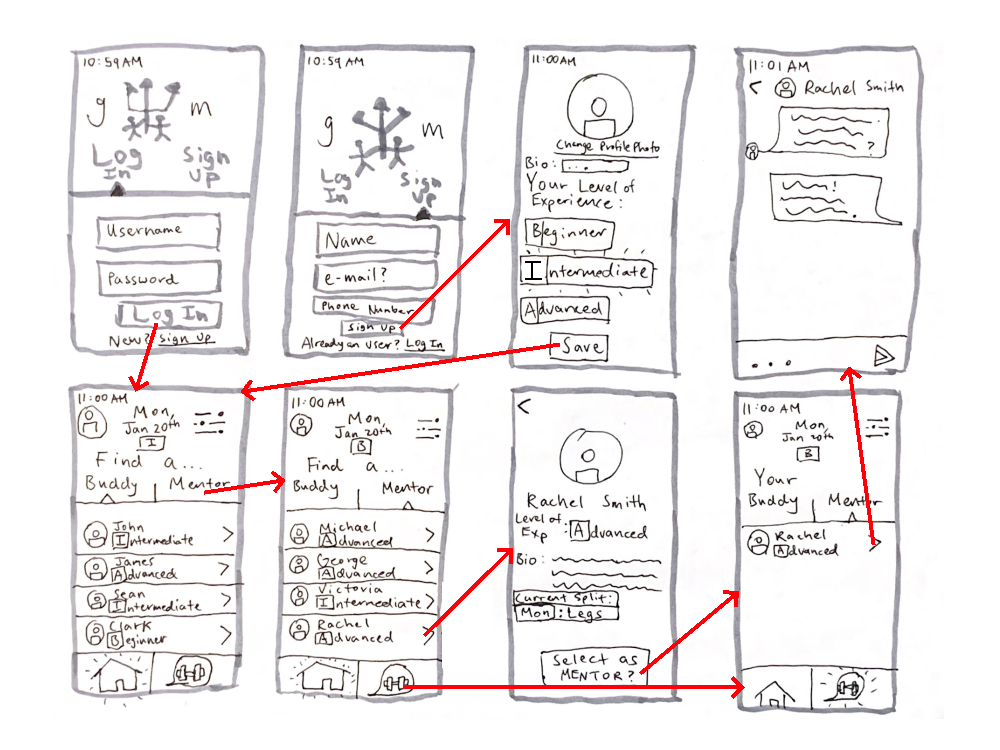 10:59AM
g m
Log In
Sign Up
Username
Password
Log In
New? Sign Up
10:59AM
g m
Log In
Sign Up
Name
e-mail?
Phone Number
Sign Up
Already an user? Log In
11:00AM
Change Profile Photo
Bio: ...
Your Level of
Experience:
Beginner
Intermediate
Advanced
Save
11:01 AM
< Rachel Smith
?
!
...
11:00 AM
Mon,
Jan 20th
I
Find a...
Buddy Mentor
John
Intermediate >
James
Advanced >
Sean
Intermediate >
Clark
Beginner >
11:00 AM
Mon,
Jan 20th
B
Find a...
Buddy Mentor
Michael
Advanced >
George
Advanced >
Victoria
Intermediate >
Rachel
Advanced >
<
Rachel Smith
Level of
Exp : Advanced
Bio:
Current Split:
Mon: Legs
Select as
MENTOR?
11:00 AM
Mon,
Jan 20th
B
Your
Buddy Mentor
Rachel
Advanced >